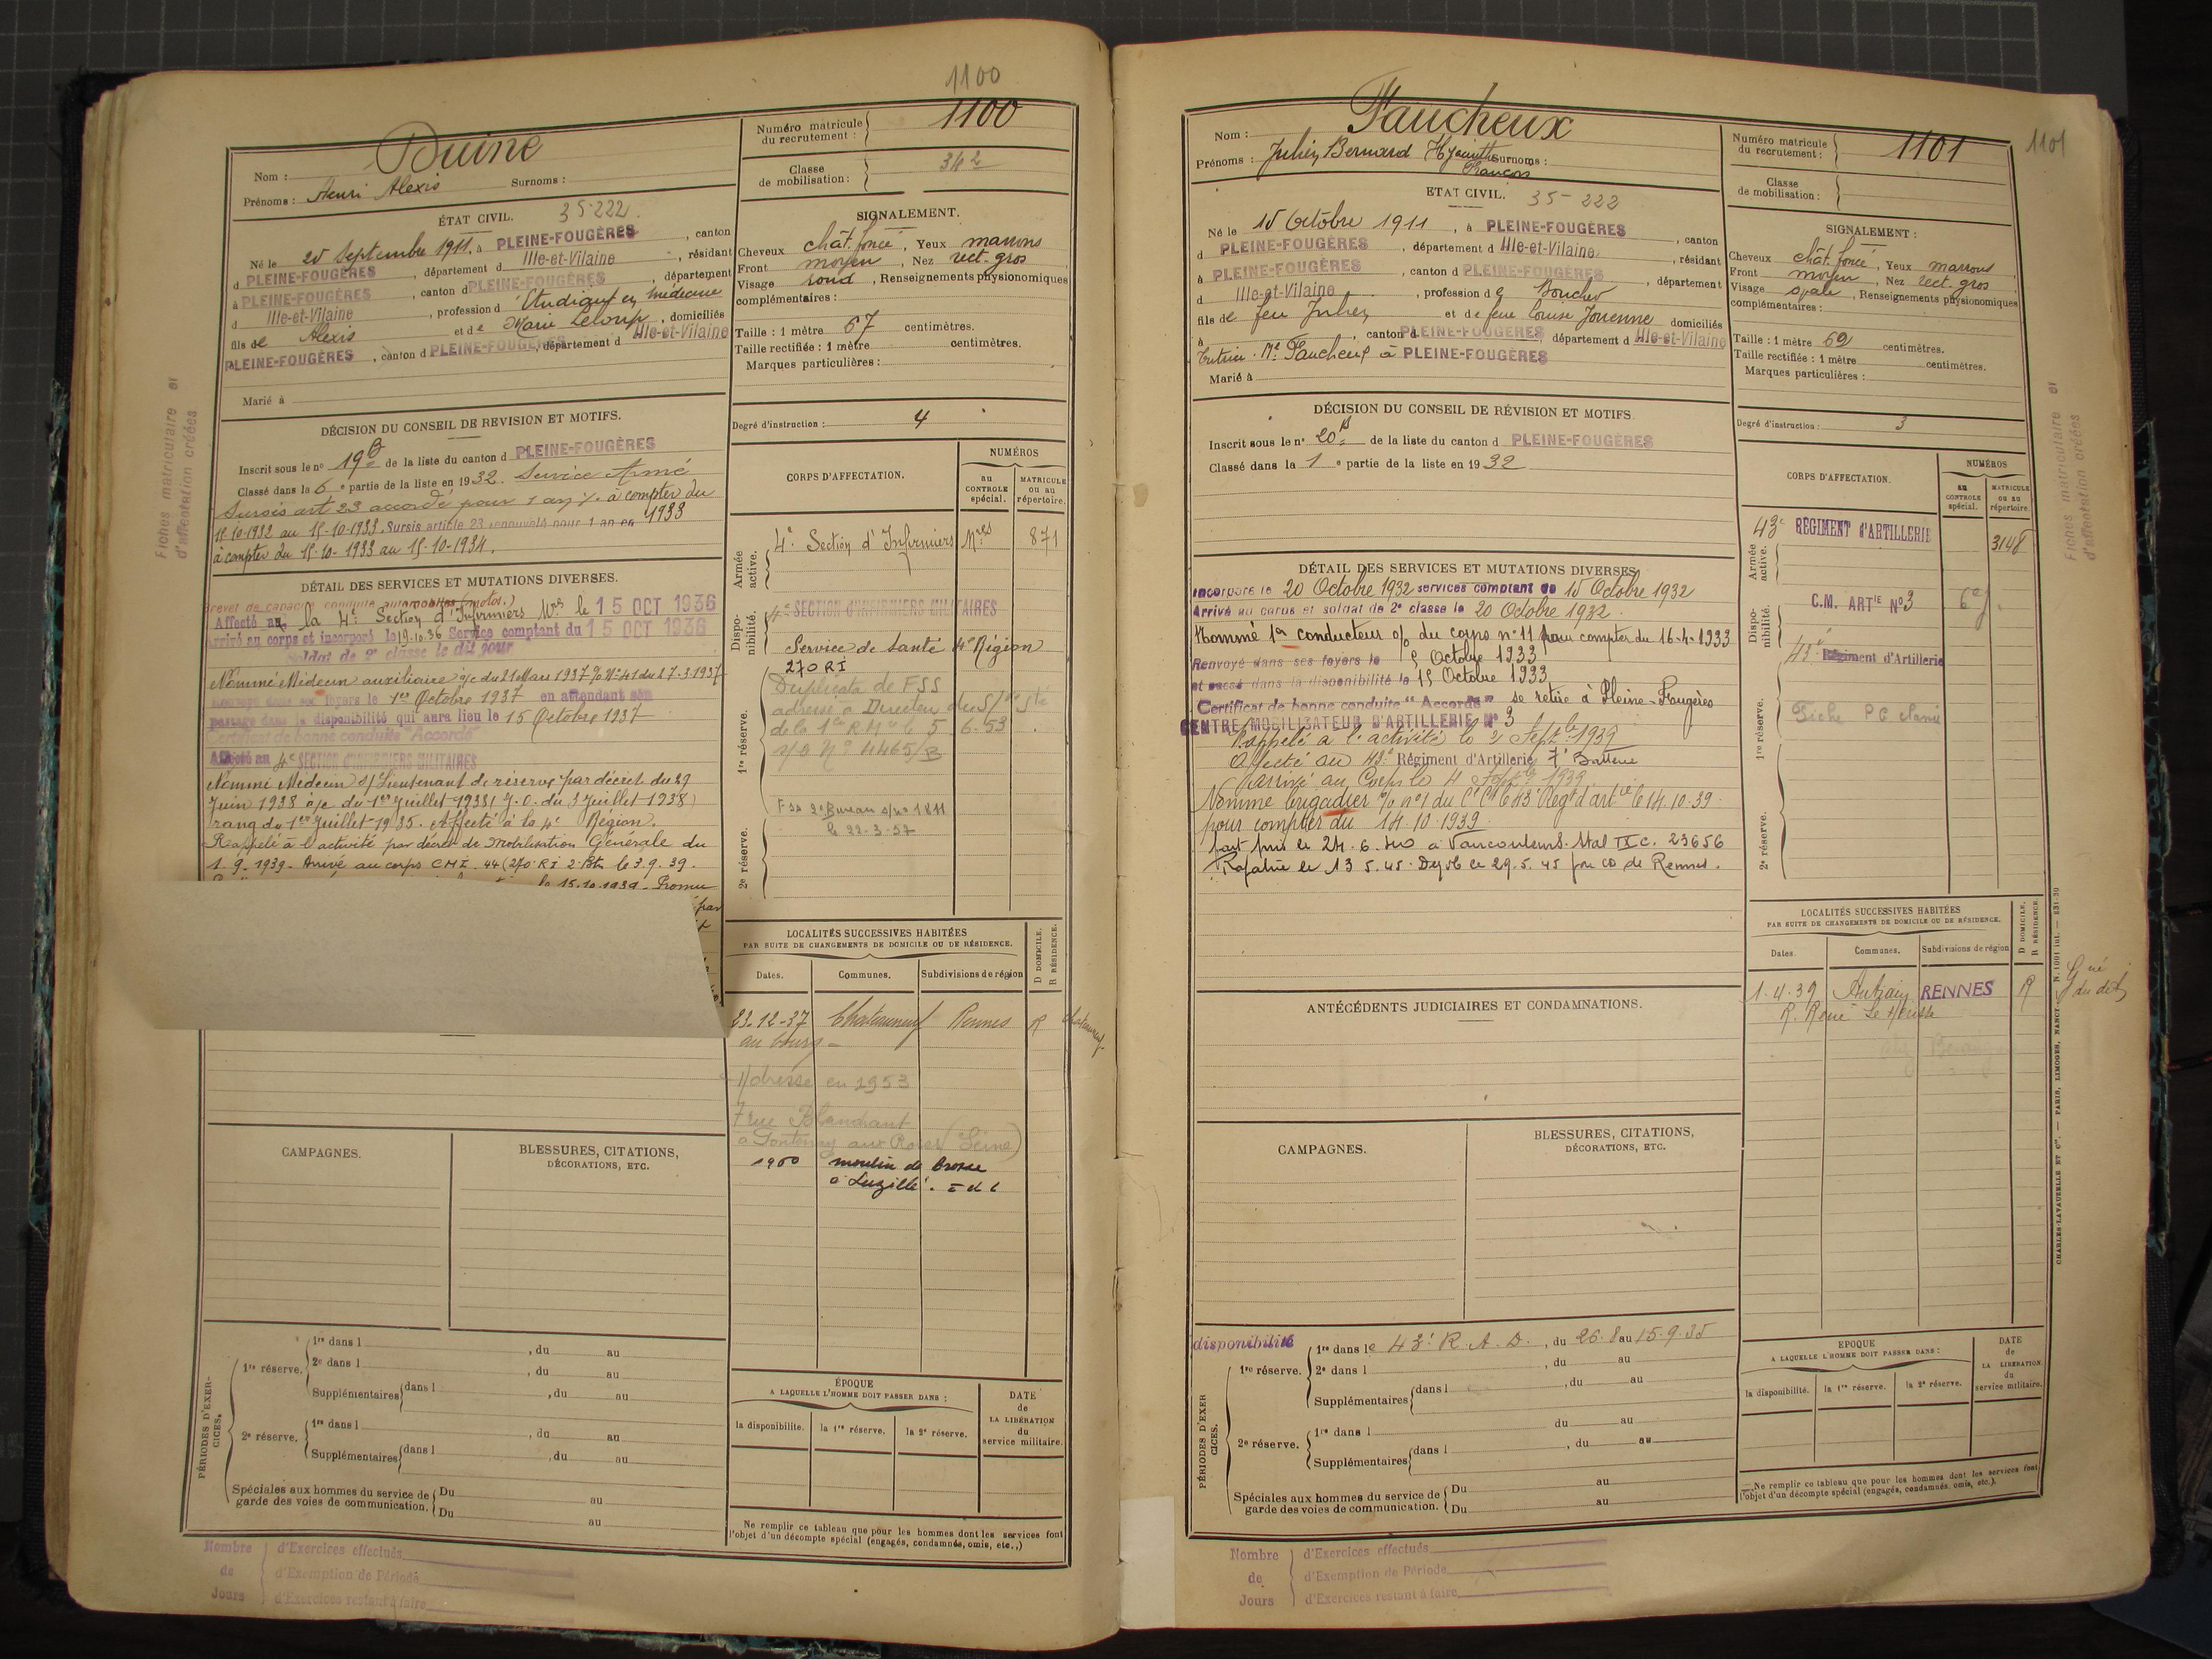 1100
Nom : Duine
Prénoms : Henri Alexis Surnoms :
Numéro matricule du recrutement : 1100
Classe de mobilisation : 342
ÉTAT CIVIL. 35-222
Né le 25 Septembre 1911, à PLEINE-FOUGÈRES, canton
d PLEINE-FOUGÈRES, département d Ille-et-Vilaine, résidant
à PLEINE-FOUGÈRES, canton d PLEINE-FOUGÈRES, département
d Ille-et-Vilaine, profession d' Etudiant en médecine
fils de Alexis et de Marie Leloup, domiciliés
PLEINE-FOUGÈRES, canton d PLEINE-FOUGÈRES, département d Ille-et-Vilaine
Marié à
SIGNALEMENT.
Cheveux chât. foncé, Yeux marrons
Front moyen, Nez rect. gros
Visage rond, Renseignements physionomiques
complémentaires :
Taille : 1 mètre 67 centimètres.
Taille rectifiée : 1 mètre centimètres.
Marques particulières :
Degré d'instruction : 4
DÉCISION DU CONSEIL DE REVISION ET MOTIFS.
Inscrit sous le n° 19 de la liste du canton d PLEINE-FOUGÈRES
Classé dans la 6e partie de la liste en 1932. Service Armé
Sursis art 23 accordé pour 1 an à compter du
15-10-1932 au 15-10-1933. Sursis article 23 renouvelé pour 1 an en 1933
à compter du 15-10-1933 au 15-10-1934.
DÉTAIL DES SERVICES ET MUTATIONS DIVERSES.
Brevet de capacité conduite automobiles (motos.)
Affecté au la 4e Section d'Infirmiers Mres le 15 OCT 1936
Arrivé au corps et incorporé le 19.10.36 Service comptant du 15 OCT 1936
Soldat de 2e classe le dit jour
Nommé Médecin auxiliaire o/c du 21 Mars 1937 % N° 41 du 17.3.1937
1er Octobre 1937 en attendant son
passage dans la disponibilité qui aura lieu le 15 Octobre 1937
Certificat de bonne conduite "Accordé"
Affecté au 4e SECTION D'INFIRMIERS MILITAIRES
Nommé Médecin s/Lieutenant de réserve par décret du 29
Juin 1938 o/c du 1er Juillet 1938 (J.O. du 3 Juillet 1938)
rang du 1er Juillet 1935. Affecté à la 4e Région.
Rappelé à l'activité par décret de Mobilisation Générale du
1.9.1939. Arrivé au corps CMI. 44 (270 RI 2e Btn le 3.9.39.
le 15.10.1939. Promu
par
CORPS D'AFFECTATION.
NUMÉROS
au CONTROLE spécial.
MATRICULE ou au répertoire.
Armée active.
4e Section d'Infirmiers Mres 871
Disponibilité.
4e SECTION D'INFIRMIERS MILITAIRES
Service de Santé 4e Région
270 RI
1re réserve.
Duplicata de FSS
adressé à Directeur du S/ce Sté
de la 1ère RM le 5.6.53
s/o N° 4465/B
2e réserve.
FSS 2e Bureau s/no 1811
le 22-3-57
LOCALITÉS SUCCESSIVES HABITÉES
PAR SUITE DE CHANGEMENTS DE DOMICILE OU DE RÉSIDENCE.
D DOMICILE. R RÉSIDENCE.
Dates. Communes. Subdivisions de région
23-12-37 Chateauneuf Rennes R
au bourg
Adresse en 1953
7 rue Blandant
à Fontenay aux Roses (Seine)
1960 moulin de Brosse
à Luzillé. I et L
CAMPAGNES.
BLESSURES, CITATIONS, DÉCORATIONS, ETC.
PÉRIODES D'EXERCICES.
1re réserve. 1re dans l , du au
2e dans l , du au
Supplémentaires dans l , du au
2e réserve. 1re dans l , du au
Supplémentaires dans l , du au
Spéciales aux hommes du service de garde des voies de communication. Du au
Du au
ÉPOQUE A LAQUELLE L'HOMME DOIT PASSER DANS :
la disponibilité. la 1re réserve. la 2e réserve.
DATE de LA LIBÉRATION du service militaire.
Ne remplir ce tableau que pour les hommes dont les services font
l'objet d'un décompte spécial (engagés, condamnés, omis, etc.,)
Nombre de Jours
d'Exercices effectués
d'Exemption de Période
d'Exercices restant à faire
Fiches matriculaire et d'affectation créées
Nom : Faucheux
Prénoms : Julien Bernard Hyacinthe François Surnoms :
Numéro matricule du recrutement : 1101
1101
Classe de mobilisation :
ETAT CIVIL. 35-222
Né le 15 Octobre 1911, à PLEINE-FOUGÈRES, canton
d PLEINE-FOUGÈRES, département d Ille-et-Vilaine, résidant
à PLEINE-FOUGÈRES, canton d PLEINE-FOUGÈRES, département
d Ille-et-Vilaine, profession de Boucher
fils de feu Julien et de feue Louise Jouenne domiciliés
à canton d PLEINE-FOUGÈRES, département d Ille-et-Vilaine
Tutrice. Me Faucheux à PLEINE-FOUGÈRES
Marié à
SIGNALEMENT :
Cheveux chât. foncé, Yeux marrons
Front moyen, Nez rect. gros
Visage ovale, Renseignements physionomiques
complémentaires :
Taille : 1 mètre 62 centimètres.
Taille rectifiée : 1 mètre centimètres.
Marques particulières :
Degré d'instruction : 3
DÉCISION DU CONSEIL DE RÉVISION ET MOTIFS.
Inscrit sous le n° 20 de la liste du canton d PLEINE-FOUGÈRES
Classé dans la 1e partie de la liste en 1932
DÉTAIL DES SERVICES ET MUTATIONS DIVERSES.
Incorporé le 20 Octobre 1932 services comptant de 15 Octobre 1932
Arrivé au corps et soldat de 2e classe le 20 Octobre 1932.
Nommé 1er conducteur % du corps n° 11 pour compter du 16-4-1933
Renvoyé dans ses foyers le 5 Octobre 1933
et passé dans la disponibilité le 15 Octobre 1933
Certificat de bonne conduite "Accordé" se retire à Pleine-Fougères
CENTRE MOBILISATEUR D'ARTILLERIE N° 3
Rappelé à l'activité le 2 Septbre 1939
Affecté au 43e Régiment d'Artillerie 7e Batterie
arrivé au Corps le 4 Septbre 1939
Nommé brigadier % n° 1 du 43e Régt d'artie le 14.10.39.
pour compter du 14.10.1939.
fait pris le 24.6.40 à Vaucouleurs. Stal IX C. 23656
Rapatrié le 13.5.45. Démob le 29.5.45 par CD de Rennes.
ANTÉCÉDENTS JUDICIAIRES ET CONDAMNATIONS.
CORPS D'AFFECTATION.
NUMÉROS
au CONTROLE spécial.
MATRICULE ou au répertoire.
Armée active.
43e RÉGIMENT d'ARTILLERIE 3148
Disponibilité.
C.M. ARTie N° 3
43e Régiment d'Artillerie
1re réserve.
2e réserve.
LOCALITÉS SUCCESSIVES HABITÉES
PAR SUITE DE CHANGEMENTS DE DOMICILE OU DE RÉSIDENCE.
D DOMICILE. R RÉSIDENCE.
Dates. Communes. Subdivisions de région
1.4.39 Antrain RENNES R
R. René Le Hérissé
CAMPAGNES.
BLESSURES, CITATIONS, DÉCORATIONS, ETC.
PÉRIODES D'EXERCICES.
disponibilité
1re réserve. 1re dans le 43e R.A.D., du 26.8 au 15.9.35
2e dans l , du au
Supplémentaires dans l , du au
2e réserve. 1re dans l du au
Supplémentaires dans l , du au
Spéciales aux hommes du service de garde des voies de communication. Du au
Du au
EPOQUE A LAQUELLE L'HOMME DOIT PASSER DANS :
la disponibilité. la 1re réserve. la 2e réserve.
DATE de LA LIBÉRATION du service militaire.
Ne remplir ce tableau que pour les hommes dont les services font
l'objet d'un décompte spécial (engagés, condamnés, omis, etc.).
Nombre de Jours
d'Exercices effectués
d'Exemption de Période
d'Exercices restant à faire
Fiches matriculaire et d'affectation créées
CHARLES-LAVAUZELLE ET Cie. — PARIS, LIMOGES, NANCY